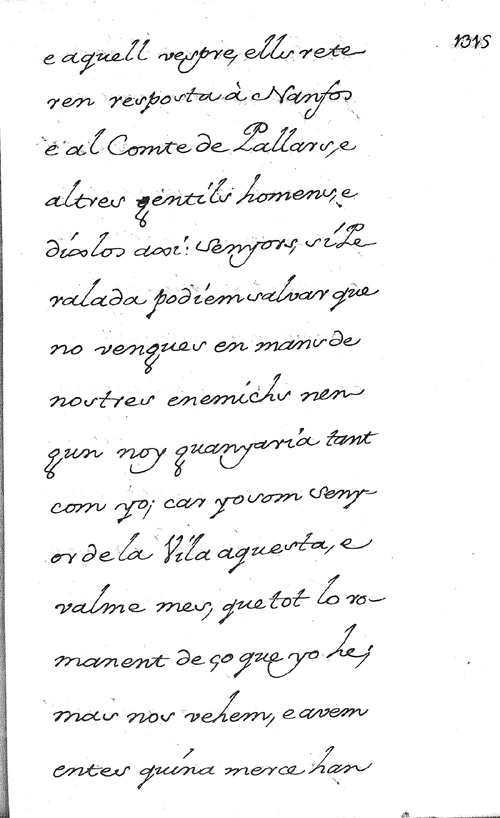 1315
e aquell vespre, ells rete
ren resposta à Nanfos
e al Comte de Pallars, e
altres gentils homens, e
dixlos axi: Senyors, si Pe
ralada podiem salvar que
no vengues en mans de
nostres enemichs nen
gun noy guanyaria tant
com yo; car yo som seny-
or de la Vila aquesta, e
valme mes, que tot lo ro-
manent de ço que yo he;
mas nos vehem, e avem
entes quina merce han